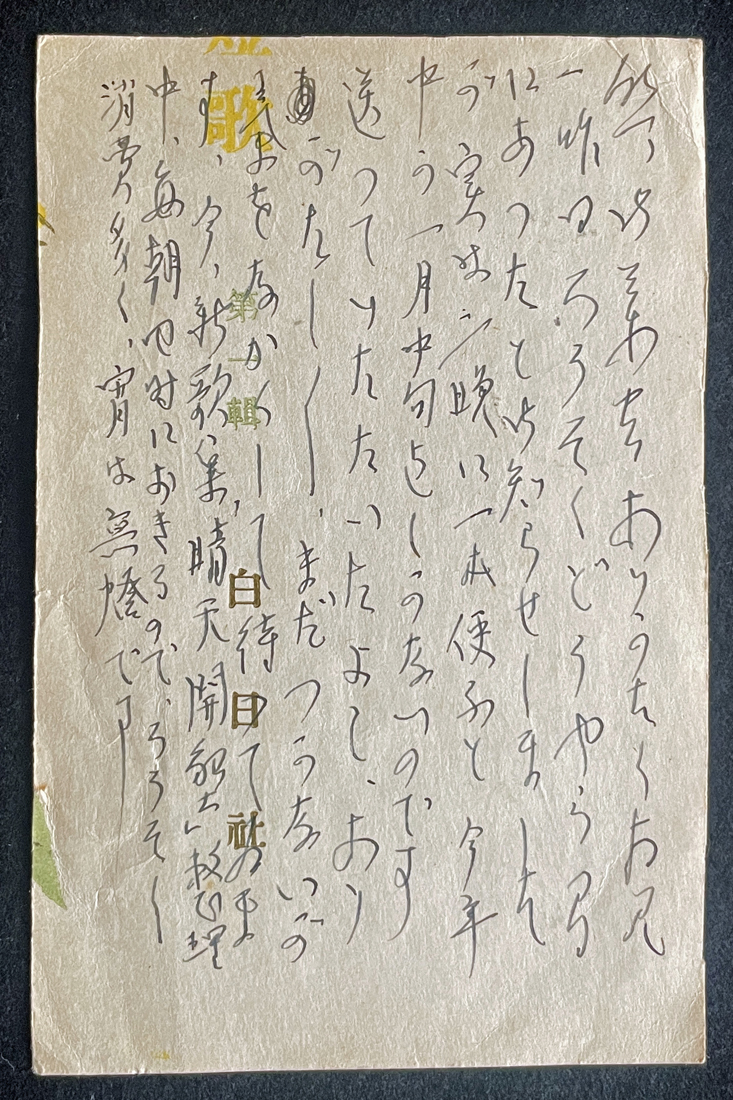 御葉書ありがたく拝見
一昨日ろうそくどうやら間
にあつたと御知らせしました
が、実は、一晩に一本使ふと今年
中、一月中旬としかないのです
送つていたたいたよし、あり
がたし〱、まだつかないが
待つてゐま
す、今、新歌集、晴天開 整理
中、毎朝四時におきるので、ろうそく
消費多く、宵は無燈です
歌
第一輯
白日社